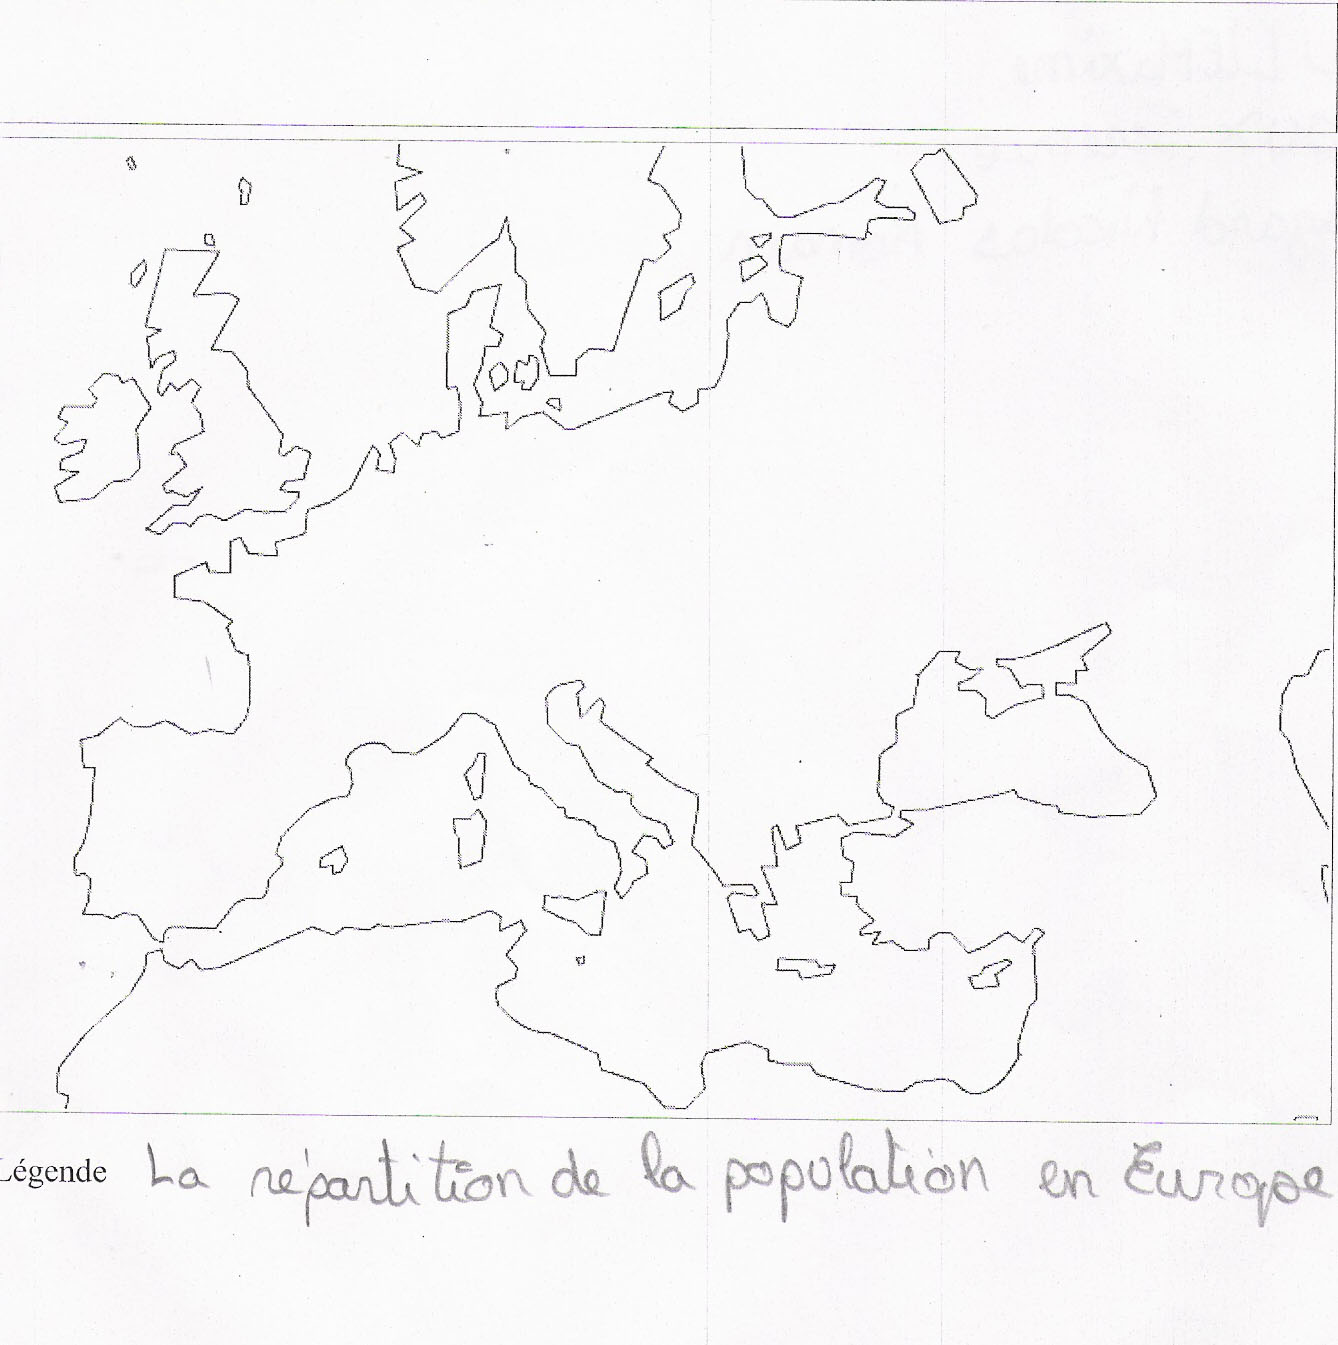 Légende La répartition de la population en Europe